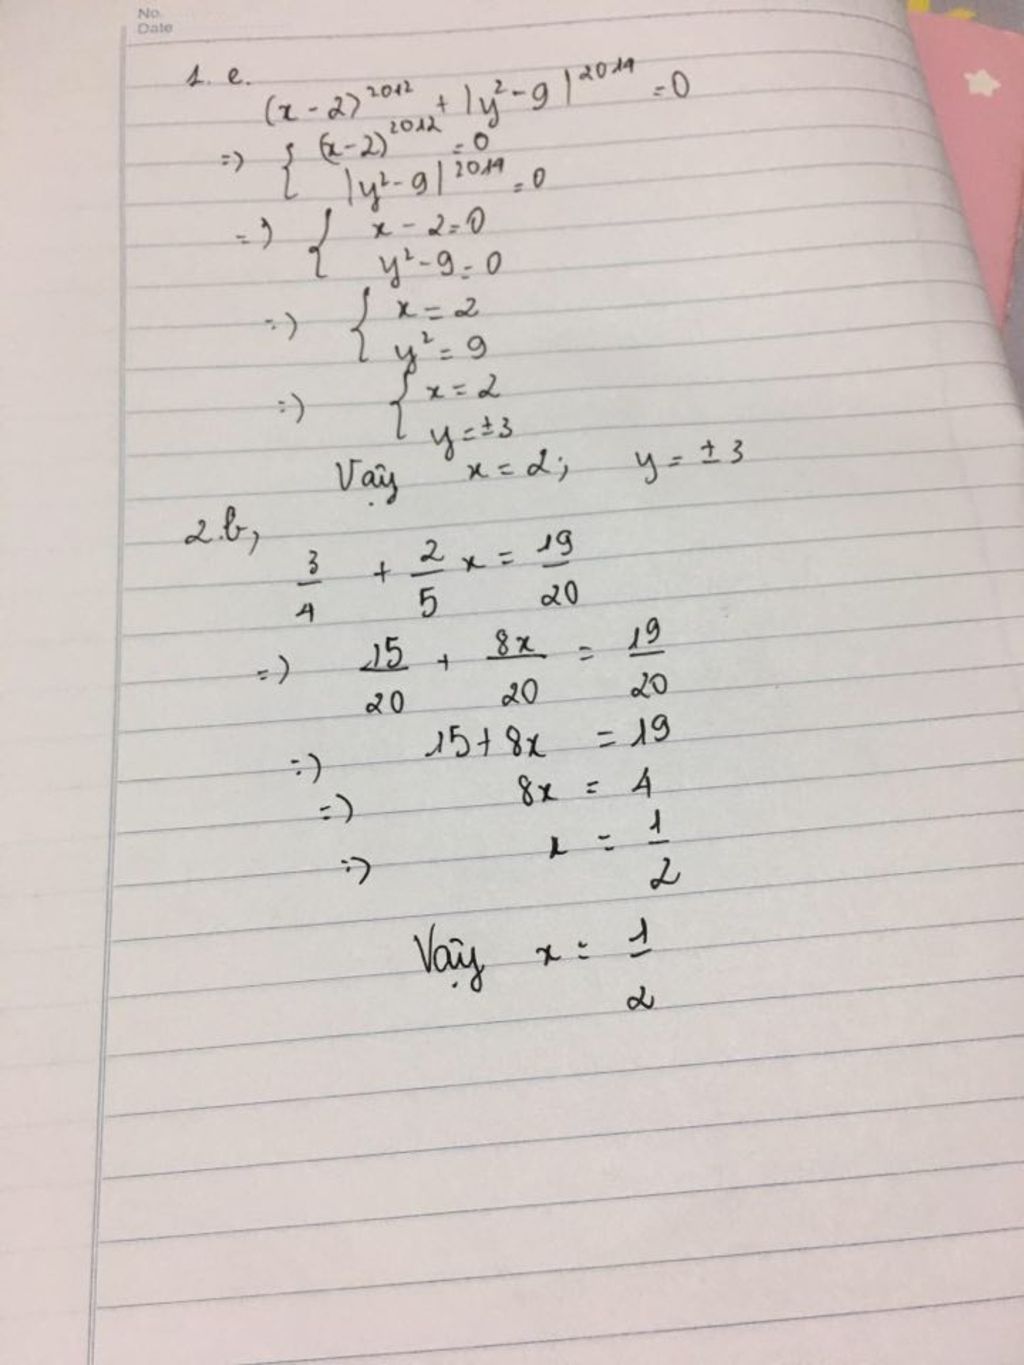 No.
Date
1. e.
(x-2)^2012 + |y²-9|^2014 = 0
=> { (x-2)^2012 = 0
|y²-9|^2014 = 0
=> { x - 2 = 0
y² - 9 = 0
=> { x = 2
y² = 9
=> { x = 2
y = ±3
Vậy x = 2; y = ± 3
2.b,
3/4 + 2/5 x = 19/20
=> 15/20 + 8x/20 = 19/20
=> 15 + 8x = 19
=> 8x = 4
=> x = 1/2
Vậy x = 1/2